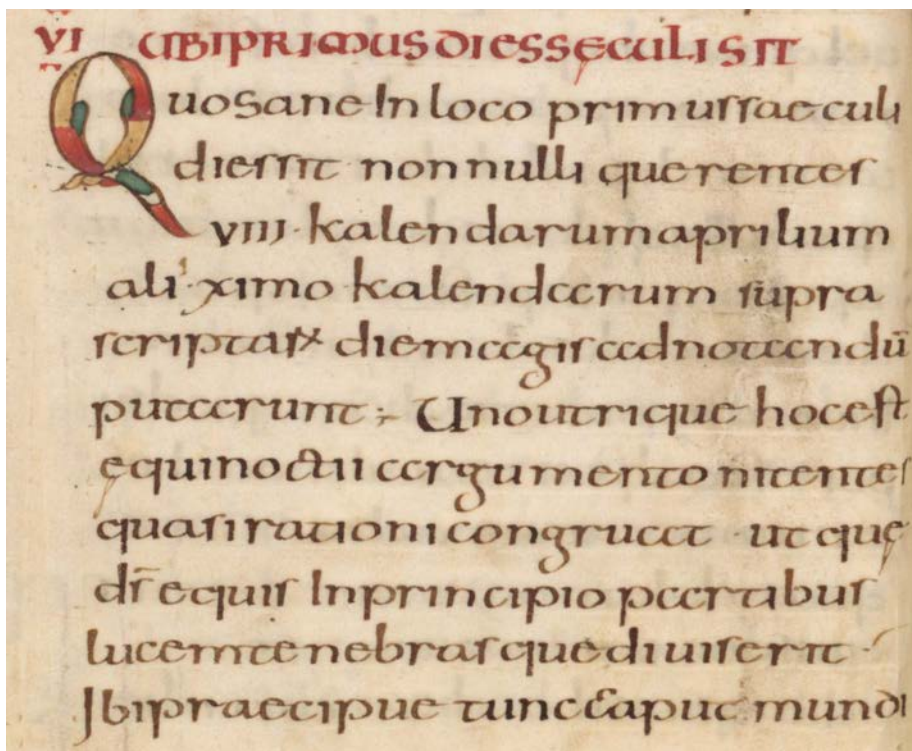 VI UBI PRIMUS DIES SECULI SIT
Quo sane In loco primus saeculi
dies sit non nulli querentes
VIII· kalendarum aprilium
ali· ximo kalendarum supra
scriptas diem magis adnotandū
putarunt; Uno utrique hoc est
ęquinoctii argumento nitentes
quasi rationi congruat ut quę
ds̄ equis In principio partibus
lucem tenebrasque diuiserit·
Ibi praecipue tunc caput mundi